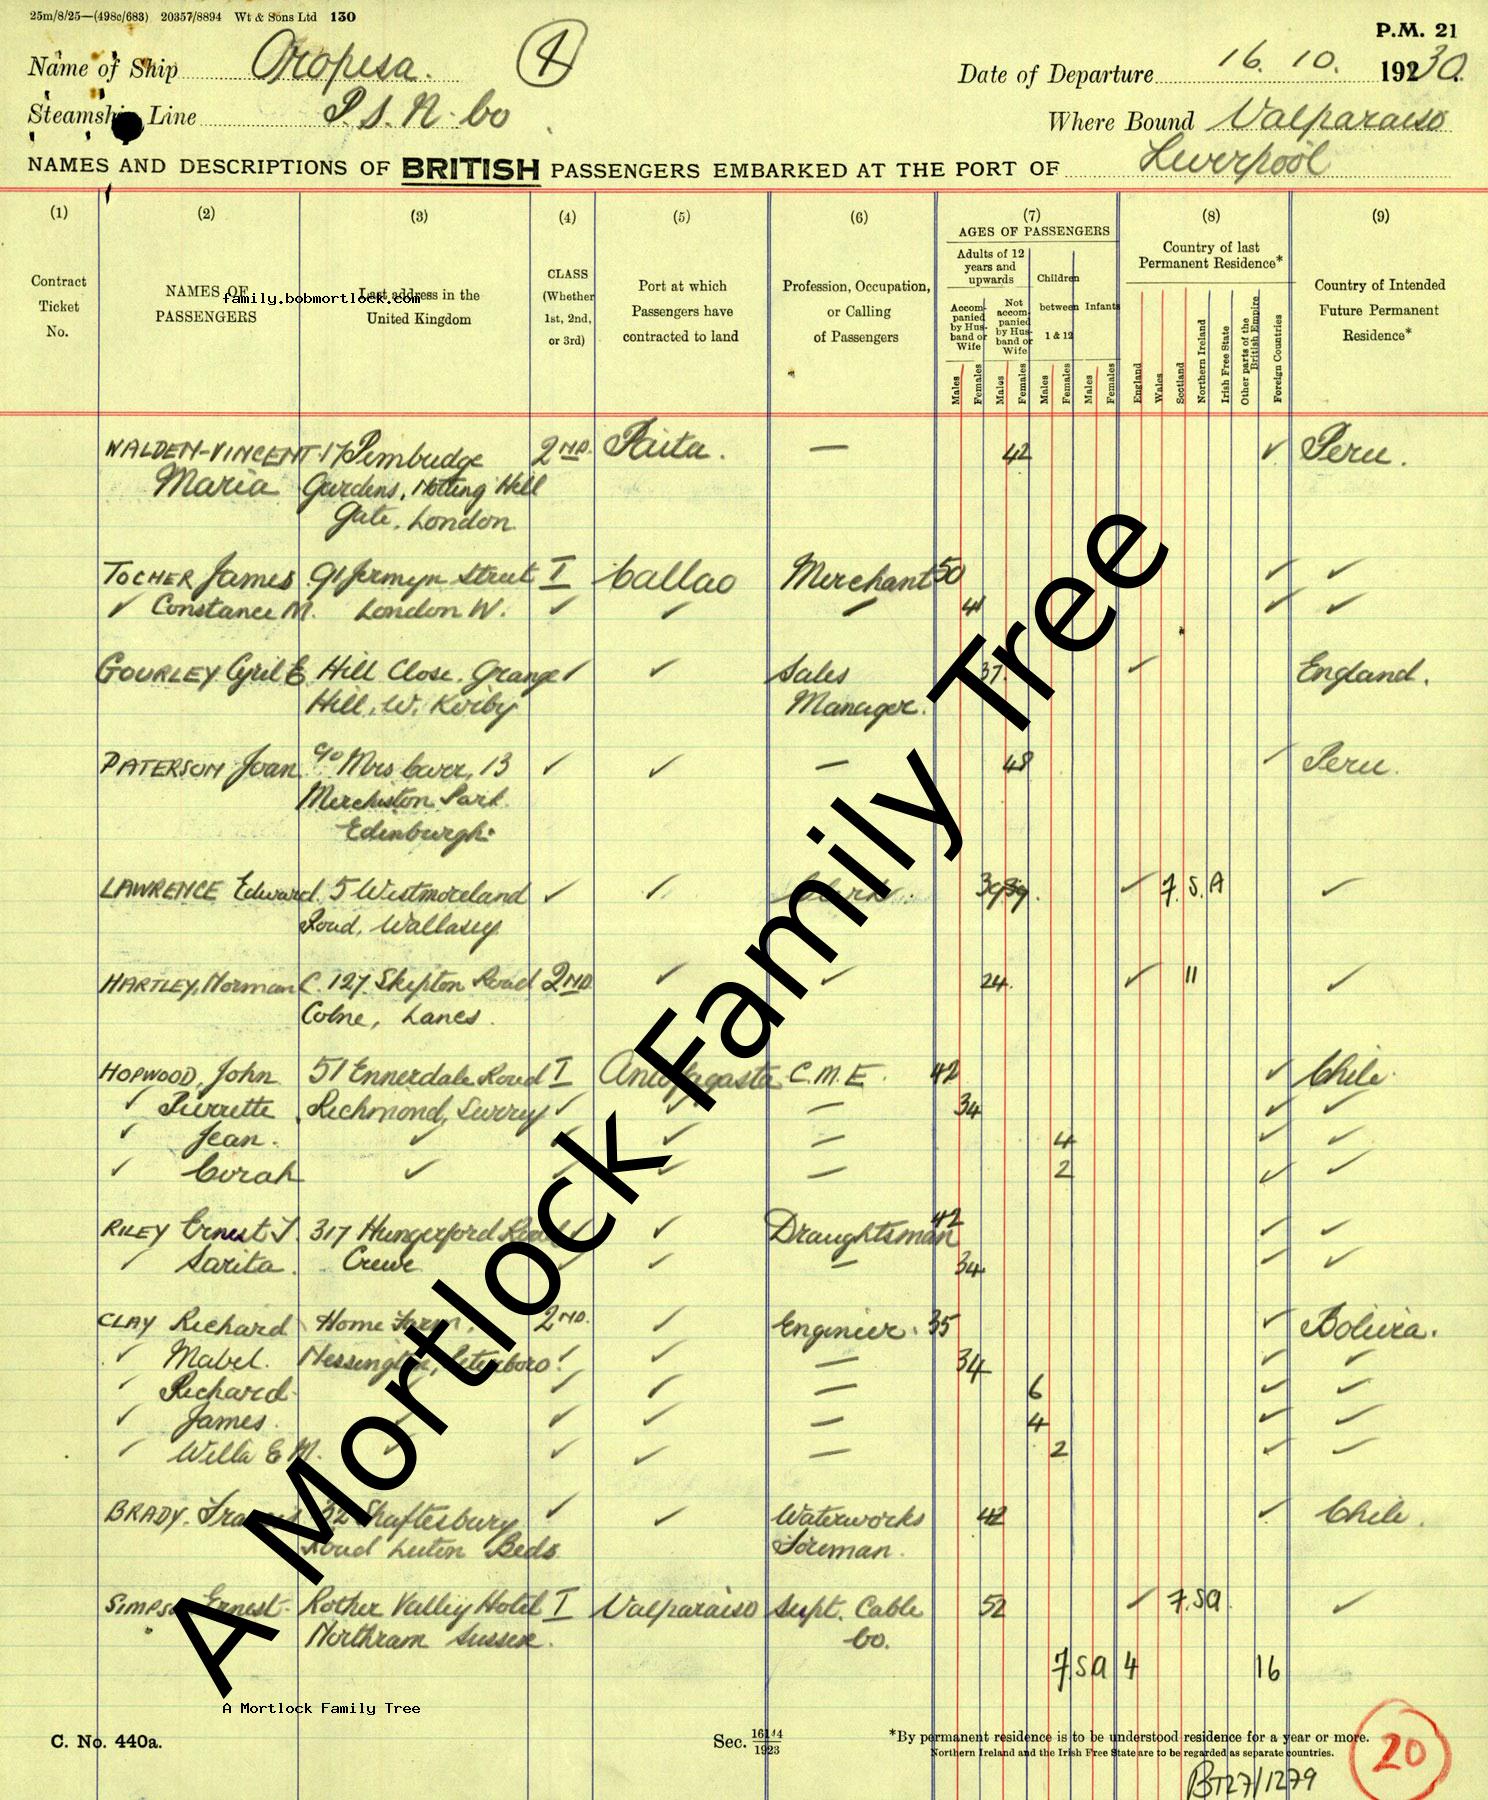 25m/8/25—(498c/683) 20357/8894 Wt & Sons Ltd 130
P.M. 21
Name of Ship Oropesa. 4
Date of Departure 16. 10. 1930.
Steamship Line P.S.N. Co
Where Bound Valparaiso
NAMES AND DESCRIPTIONS OF BRITISH PASSENGERS EMBARKED AT THE PORT OF Liverpool
(1) (2) (3) (4) (5) (6) (7) (8) (9)
Contract Ticket No.
NAMES OF PASSENGERS
family.bobmortlock.com
Last address in the United Kingdom
CLASS (Whether 1st, 2nd, or 3rd)
Port at which Passengers have contracted to land
Profession, Occupation, or Calling of Passengers
AGES OF PASSENGERS
Adults of 12 years and upwards
Accompanied by Husband or Wife
Not accompanied by Husband or Wife
Children between 1 & 12
Infants
Males Females Males Females Males Females Males Females
Country of last Permanent Residence*
England Wales Scotland Northern Ireland Irish Free State Other parts of the British Empire Foreign Countries
Country of Intended Future Permanent Residence*
WALDEN-VINCENT 17 Pembridge 2ND. Paita. — 42 ✓ Peru.
Maria Gardens, Notting Hill
Gate, London
TOCHER James 91 Jermyn Street I Callao Merchant 50 ✓ ✓
✓ Constance M. London W. ✓ ✓ — 41 ✓ ✓
GOURLEY Cyril E Hill Close, Grange ✓ ✓ Sales 37. ✓ England.
Hill, W. Kirby Manager.
PATERSON Joan c/o Mrs Carr, 13 ✓ ✓ — 48 ✓ Peru.
Merchiston Park
Edinburgh.
LAWRENCE Edward 5 Westmoreland ✓ ✓ Clerk. 39 39. ✓ 7 S.A ✓
Road, Wallasey
HARTLEY, Norman C. 127 Skipton Road 2ND ✓ ✓ 24. ✓ 11 ✓
Colne, Lancs.
HOPWOOD, John 51 Ennerdale Road I Antofagasta C.M.E. 42 ✓ Chile.
✓ Pierrette Richmond, Surrey ✓ ✓ — 34 ✓ ✓
✓ Jean. ✓ ✓ ✓ — 4 ✓ ✓
✓ Corah ✓ ✓ ✓ — 2 ✓ ✓
RILEY Ernest J. 317 Hungerford Road ✓ ✓ Draughtsman 42 ✓ ✓
✓ Sarita. Crewe ✓ ✓ — 34 ✓ ✓
CLAY Richard Home Farm, 2ND. ✓ Engineer. 35 ✓ Bolivia.
✓ Mabel. Peterboro. ✓ ✓ — 34 ✓ ✓
✓ Richard ✓ ✓ ✓ — 6 ✓ ✓
✓ James. ✓ ✓ ✓ — 4 ✓ ✓
✓ Willa E M. ✓ ✓ ✓ — 2 ✓ ✓
BRADY. 32 Shaftesbury ✓ ✓ Waterworks 42 ✓ Chile.
Road Luton Beds Foreman.
Ernest Rother Valley Hotel I Valparaiso Supt. Cable 52 ✓ 7.SA ✓
Northiam Sussex. Co.
7 SA 4 16
A Mortlock Family Tree
A Mortlock Family Tree
C. No. 440a.
Sec. 16144/1923
*By permanent residence is to be understood residence for a year or more.
Northern Ireland and the Irish Free State are to be regarded as separate countries.
20
BT27/1279